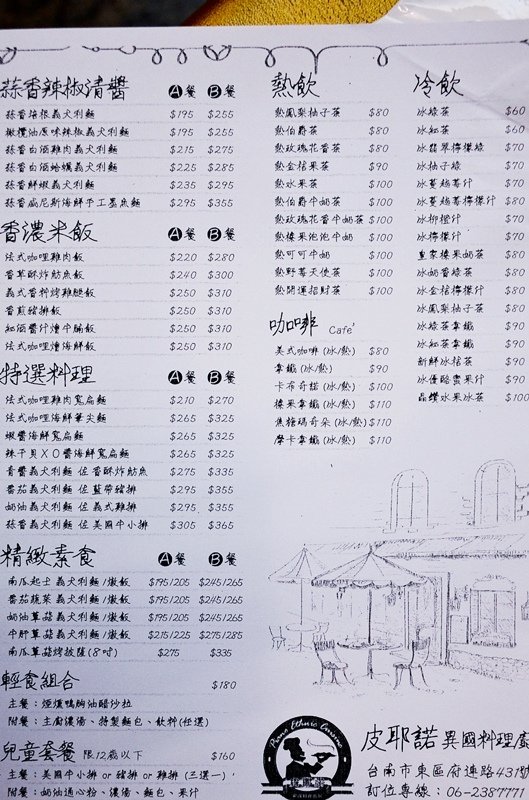 蒜香辣椒清醬 A餐 B餐
蒜香培根義式利麵 $195 $255
橄欖油原味辣椒義式利麵 $195 $255
蒜香白酒雞肉義式利麵 $215 $275
蒜香白酒蛤蠣義式利麵 $225 $285
蒜香鮮蝦義式利麵 $235 $295
蒜香威尼斯海鮮手工墨魚麵 $295 $355
香濃米飯 A餐 B餐
法式咖哩雞肉飯 $220 $280
香草酥炸魴魚飯 $240 $300
義式香料烤雞腿飯 $250 $310
香煎豬排飯 $250 $310
紅酒醬汁燴牛腩飯 $250 $310
法式咖哩燴海鮮飯 $250 $310
特選料理 A餐 B餐
法式咖哩雞肉寬扁麵 $210 $270
法式咖哩海鮮筆尖麵 $265 $325
蝦醬海鮮寬扁麵 $265 $325
辣干貝XO醬海鮮寬扁麵 $265 $325
青醬義式利麵 佐 香酥炸魴魚 $275 $335
番茄義式利麵 佐 藍帶豬排 $295 $355
奶油義式利麵 佐 義式雞排 $295 $355
蒜香義式利麵 佐 美國牛小排 $305 $365
精緻素食 A餐 B餐
南瓜起士 義式利麵/燉飯 $195/205 $245/265
番茄蔬菜 義式利麵/燉飯 $195/205 $245/265
奶油草菇 義式利麵/燉飯 $195/205 $245/265
牛肝草菇 義式利麵/燉飯 $215/225 $275/285
南瓜草菇烤披薩(8吋) $275 $335
輕食組合 $180
主餐：煙燻鴨胸油醋沙拉
附餐：主廚濃湯、特製麵包、飲料(任選)
兒童套餐 限12歲以下 $160
主餐：美國牛小排 or 豬排 or 雞排 (三選一)
附餐：奶油通心粉、濃湯、麵包、果汁
熱飲
熱鳳梨柚子茶 $80
熱伯爵茶 $80
熱玫瑰花香茶 $80
熱金桔果茶 $90
熱水果茶 $100
熱伯爵牛奶茶 $100
熱玫瑰花香牛奶茶 $100
熱榛果泡泡牛奶 $100
熱可可牛奶 $100
熱野莓天使茶 $100
熱開運招財茶 $100
咖啡 Cafe'
美式咖啡 (冰/熱) $80
拿鐵 (冰/熱) $90
卡布奇諾 (冰/熱) $100
榛果拿鐵 (冰/熱) $110
焦糖瑪奇朵 (冰/熱) $110
摩卡拿鐵 (冰/熱) $110
冷飲
冰綠茶 $60
冰紅茶 $60
冰翡翠檸檬綠 $70
冰柚子綠 $70
冰蔓越莓汁 $70
冰蔓越莓檸檬汁 $80
冰柳橙汁 $70
冰檸檬汁 $70
皇家榛果奶茶 $80
冰奶香綠茶 $80
冰金桔檸檬汁 $80
冰鳳梨柚子茶 $80
冰綠茶拿鐵 $90
冰紅茶拿鐵 $90
新鮮冰桔茶 $90
冰優酪蜜果汁 $90
晶鑽水果冰茶 $100
Piano Ethnic Cuisine
皮耶諾
皮耶諾 異國料理廚
台南市東區府連路431號
訂位專線：06-2387771